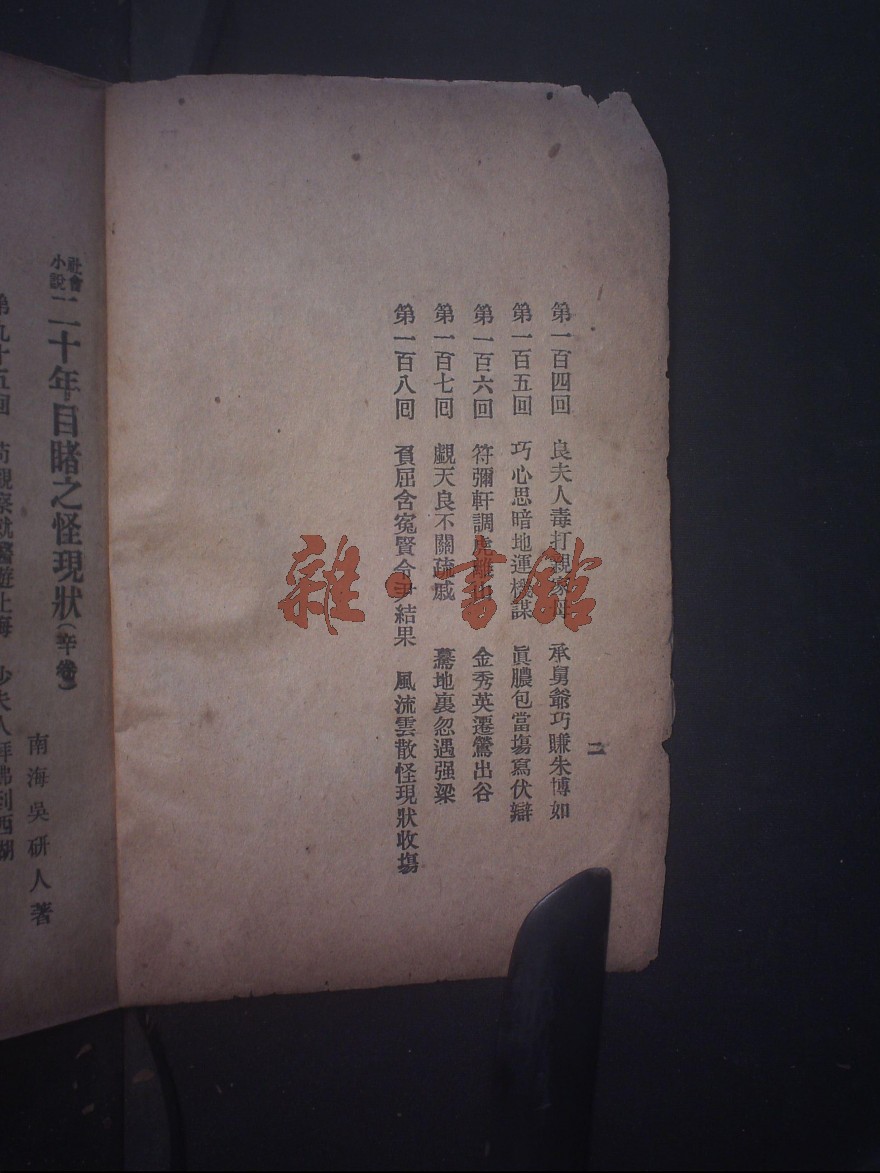 二
第一百四回 良夫人毒打親家母 承舅爺巧賺朱博如
第一百五回 巧心思暗地運機謀 眞膿包當塲寫伏辯
第一百六回 符彌軒調虎離山 金秀英遷鶯出谷
第一百七回 覷天良不關疏戚 驀地裏忽遇强梁
第一百八回 負屈含寃賢令尹結果 風流雲散怪現狀收塲
雜·書館
社會小說 二十年目睹之怪現狀(辛卷)
南海吳研人著
第九十五回 苟觀察就醫遊上海 少夫人拜佛到西湖